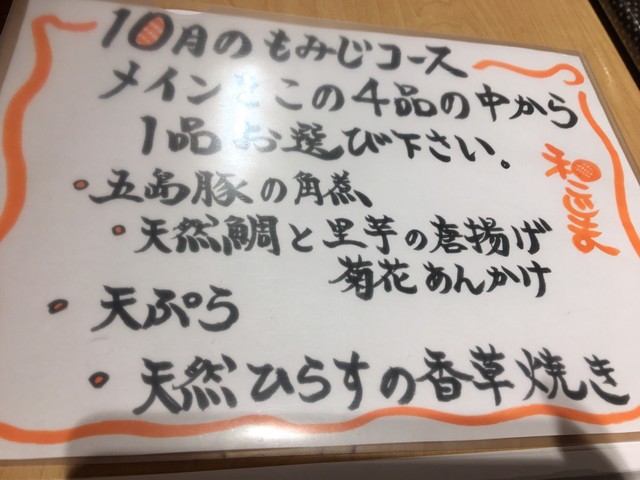 10月のもみじコース
メインをこの4品の中から
1品お選び下さい。
・五島豚の角煮、
・天然鯛と里芋の唐揚げ
菊花あんかけ
・天ぷら
・天然ひらすの香草焼き